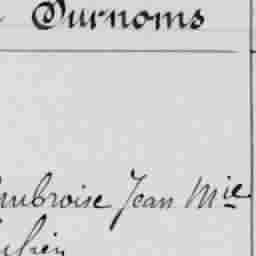 Surnoms
Ambroise Jean Mie